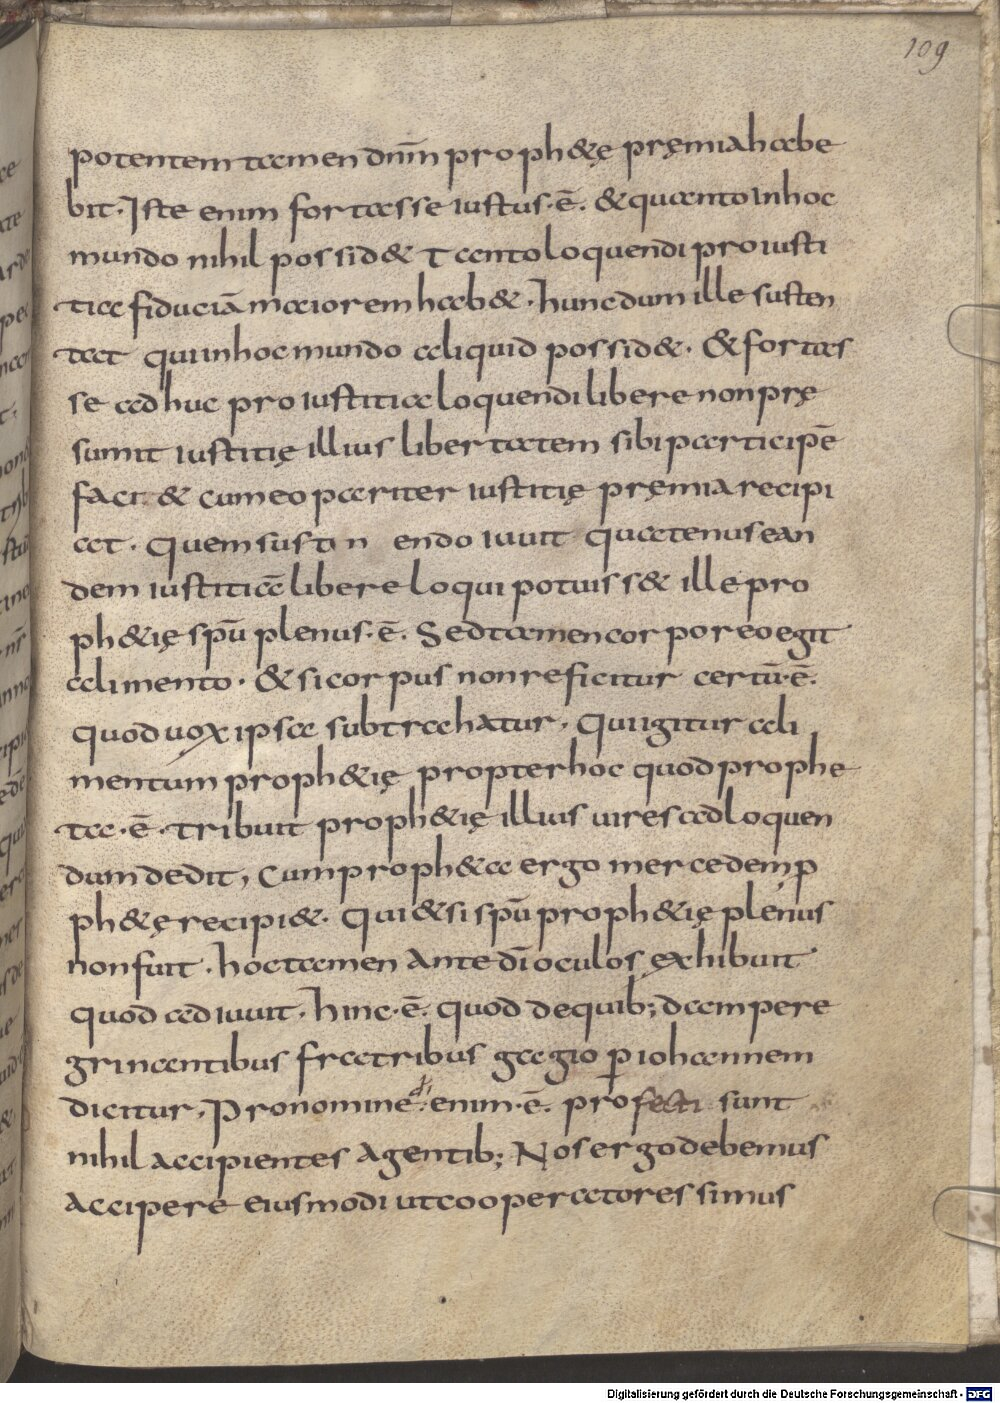 109
potentem tamen dnm̄ proph&ę pręmia habe
bit. Iste enim fortasse iustus.ē. & quanto in hoc
mundo nihil possid& Tanto loquendi pro iusti
tia fiduciā maiorem hab&. hunc dum ille susten
tat qui in hoc mundo aliquid possid&. & fortas
se adhuc pro iustitia loquendi libere non prę
sumit iustitię illius libertatem sibi participē
faci & cum eo pariter iustitię pręmia recipi
at. Quem sus ti n endo iuuit quatenus ean
dem iustitiā libere loqui potuiss& ille pro
ph&ię spū plenus.ē. Sed tamen corporeo egit
alimento. & si corpus non reficitur certū.ē.
quod uox ipsa subtrahatur. Qui igitur ali
mentum proph&ię propter hoc quod prophe
ta.ē. tribuit proph&ię illius uires ad loquen
dum dedit, Cum proph&a ergo mercedem p
ph&ę recipi&. Qui & si spū proph&ię plenus
non fuit. hoc tamen ante dī oculos exhibuit
quod adiuuit. hinc.ē. quod de quib; dam pere
grinantibus fratribus gagio p iohannem
dicitur, Pro nomine enim.ē. profecti sunt
nihil accipientes a gentib; Nos ergo debemus
accipere eiusmodi ut cooperatores simus
Digitalisierung gefördert durch die Deutsche Forschungsgemeinschaft - DFG